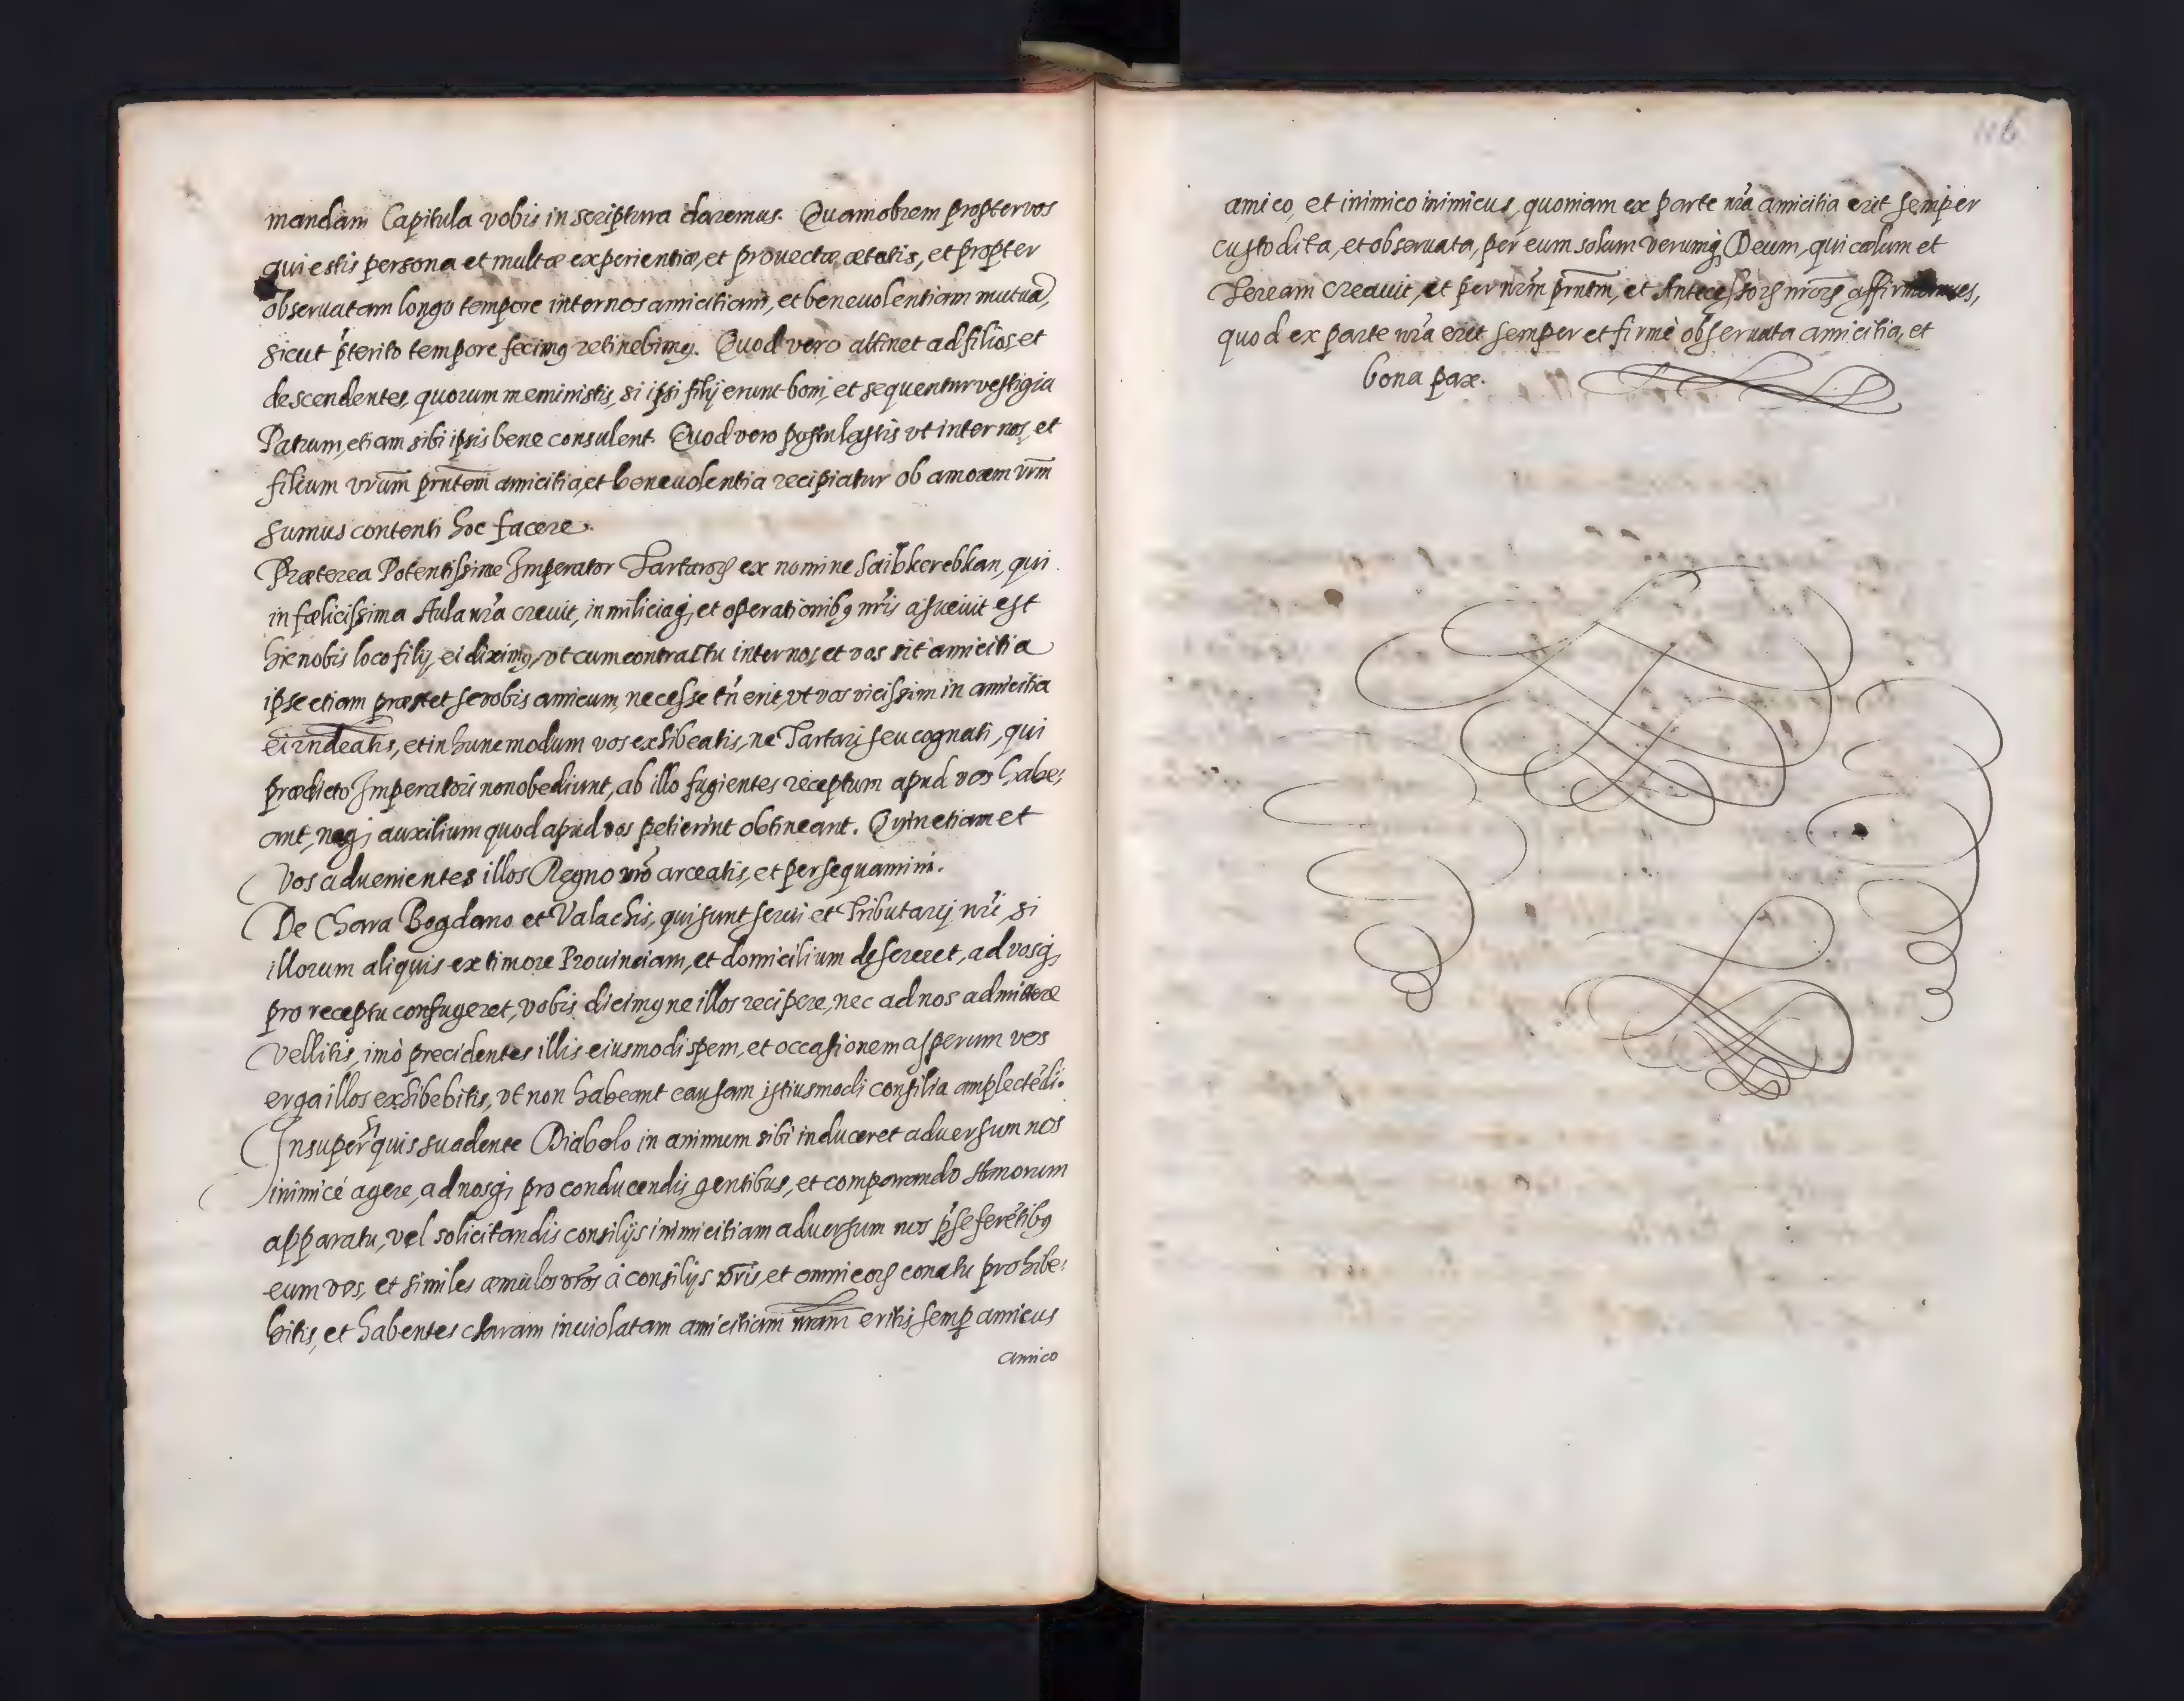 mandam Capitula vobis in scriptura daremus. Quamobrem propter vos
qui estis persona et multæ experientiæ, et prouectæ ætatis, et propter
obseruatam longo tempore inter nos amicitiam, et beneuolentiam mutuā,
sicut p̄terito tempore fecimꝰ retinebimꝰ. Quod vero attinet ad filios et
descendentes, quorum meministis, si ipsi filij erunt boni, et sequentur vestigia
Patrum, etiam sibi ipsis bene consulent. Quod vero postulastis vt inter nos, et
filium vr̄um pr̄ntem amicitia, et beneuolentia recipiatur ob amorem vr̄m
sumus contenti hoc facere.
Præterea Potentissime Imperator Tartaroꝝ ex nomine Saibkerebkan, qui
in fælicissima Aula nr̄a creuit, in miliciaq; et operationibꝰ nr̄is assueuit est
hic nobis loco filij, ei diximꝰ, vt cum contractu inter nos et vos sit amicitia
ipse etiam præstet se vobis amicum, necesse tn̄ erit, vt vos vicissim in amicitia
ei rn̄deatis, et in hunc modum vos exhibeatis, ne Tartari seu cognati, qui
prædicto Imperatori non obediunt, ab illo fugientes receptum apud vos habe:
ant, neq; auxilium quod apud vos petierint obtineant. Quin etiam et
vos aduenientes illos Regno vr̄o arceatis, et persequamini.
De Chara Bogdano et Valachis, qui sunt serui et Tributarij nr̄i, si
illorum aliquis ex timore Prouinciam, et domicilium desereret, ad vosq;
pro receptu confugeret, vobis dicimꝰ ne illos recipere, nec ad nos admittere
vellitis, imò precidentes illis eiusmodi spem, et occasionem asperum vos
erga illos exhibebitis, vt non habeant causam istiusmodi consilia amplectēdi.
Insuper si quis suadente Diabolo in animum sibi induceret aduersum nos
inimicè agere, ad nosq; pro conducendis gentibus, et comparando Armorum
apparatu, vel solicitandis consilijs inimicitiam aduersum nos p̄seferētibꝰ
eum vos, et similes æmulos vr̄os à consilijs vr̄is, et omni eoꝝ conatu prohibe:
bitis, et habentes claram inuiolatam amicitiam nr̄am eritis semp̱ amicus
amico
116
amico, et inimico inimicus, quoniam ex parte nr̄a amicitia erit semper
custodita, et obseruata, per eum solum verumq; Deum, qui cælum et
terream creauit, et per nr̄m pr̄ntm, et Antecessoꝝ nr̄oꝝ affirmamus,
quod ex parte nr̄a erit semper et firmè obseruata amicitia, et
bona pax.